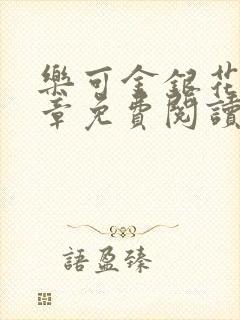 樂可金銀花
章免費閱讀
語盈臻